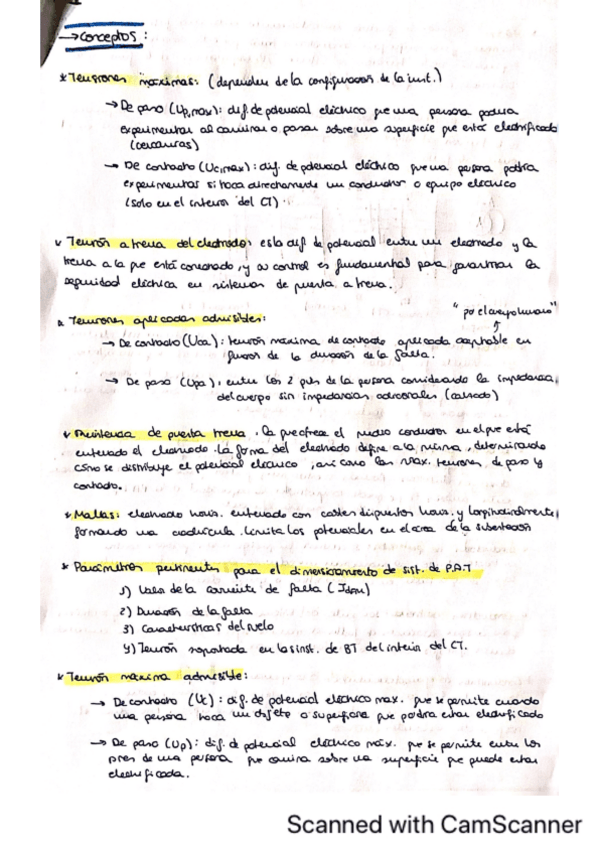 → Conceptos:
* Tensiones máximas: (dependen de la configuración de la inst.)
→ De paso (Up,max): dif. de potencial eléctrico que una persona podría
experimentar al caminar o pasar sobre una superficie que está electrificada
(cercanías)
→ De contacto (Uc,max): dif. de potencial eléctrico que una persona podría
experimentar si toca directamente un conductor o equipo eléctrico
(Solo en el interior del CT).
* Tensión a tierra del electrodo: es la dif. de potencial entre un electrodo y la
tierra a la que está conectado, y su control es fundamental para garantizar la
seguridad eléctrica en sistemas de puesta a tierra.
"por el cuerpo humano"
* Tensiones aplicadas admisibles:
→ De contacto (Uca): tensión máxima de contacto aplicada aceptable en
función de la duración de la falta.
→ De paso (Upa): entre los 2 pies de la persona considerando la impedancia
del cuerpo sin impedancias adicionales (calzado)
* Resistencia de puesta tierra: la que ofrece el medio conductor en el que está
enterrado el electrodo. La forma del electrodo define a la misma, determinando
cómo se distribuye el potencial eléctrico, así como las max. tensiones de paso y
contacto.
* Mallas: electrodo horiz. enterrado con cables dispuestos horiz. y longitudinalmente
formando una cuadrícula. Limita los potenciales en el área de la subestación
* Parámetros pertinentes para el dimensionamiento de sist. de P.A.T
1) Valor de la corriente de falta
2) Duración de la falta
3) Características del suelo
4) Tensión soportada en las inst. de BT del interior del CT.
* Tensión máxima admisible:
→ De contacto (Uc): dif. de potencial eléctrico max. que se permite cuando
una persona toca un objeto o superficie que podría estar electrificado
→ De paso (Up): dif. de potencial eléctrico máx. que se permite entre los
pies de una persona que camina sobre una superficie que puede estar
electrificada.
Scanned with CamScanner